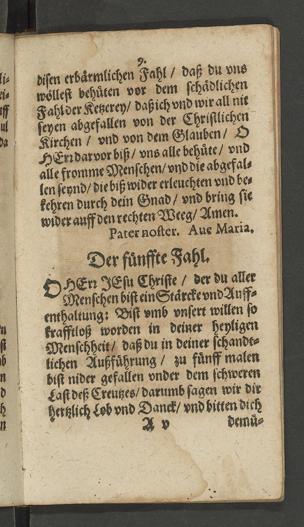 9.
disen erbärmlichen Fahl / daß du vns
wöllest behüten vor dem schädlichen
Fahl der Ketzerey / daß ich vnd wir all nit
seyen abgefallen von der Christlichen
Kirchen / vnd von dem Glauben / O
HErr darvor biß / vns alle behüte / vnd
alle fromme Menschen / vnd die abgefal-
len seynd / die biß wider erleuchten vnd be-
kehren durch dein Gnad / vnd bring sie
wider auff den rechten Weeg / Amen.
Pater noster. Aue Maria.
Der fünffte Fahl.
O HErr JEsu Christe / der du aller
Menschen bist ein Stärcke vnd Auff-
enthaltung: Bist vmb vnsert willen so
krafftloß worden in deiner heyligen
Menschheit / daß du in deiner schandt-
lichen Außführung / zu fünff malen
bist nider gefallen vnder dem schweren
Last deß Creutzes / darumb sagen wir dir
hertzlich Lob vnd Danck / vnd bitten dich
A v demü-